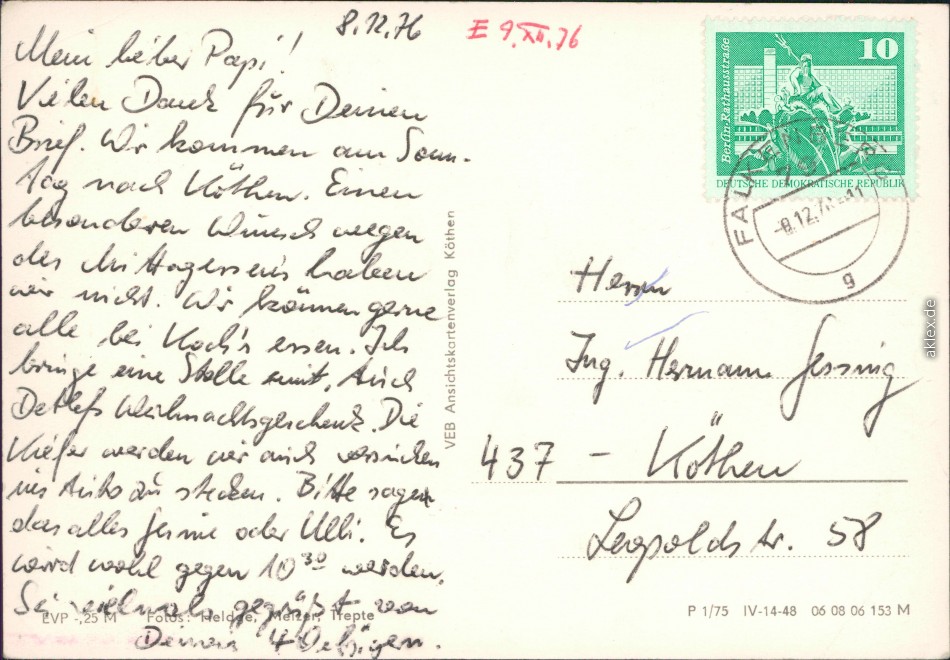 8.12.76
E 9.XII.76
Mein lieber Papi!
Vielen Dank für Deinen
Brief. Wir kommen am Sonn-
tag nach Köthen. Einen
besonderen Wunsch wegen
des Mittagessens haben
wir nicht. Wir können gerne
alle bei Koch's essen. Ich
bringe eine Stolle mit. Auch
Detlefs Weihnachtsgeschenk. Die
Kiefer werden wir auch versuchen
ins Auto zu stecken. Bitte sage
das alles oder Ulli. Es
wird wohl gegen 10³⁰ werden.
Sei vielmals gegrüßt von
Deinen 4
EVP -,25 M Fotos: Heldge, Melzer, Trepte
VEB Ansichtskartenverlag Köthen
Berlin-Rathausstraße
10
DEUTSCHE DEMOKRATISCHE REPUBLIK
-8.12.76-11
g
Herrn
Ing. Hermann Gessing
437 – Köthen
Leopoldstr. 58
P 1/75 IV-14-48 06 08 06 153 M
aklex.de